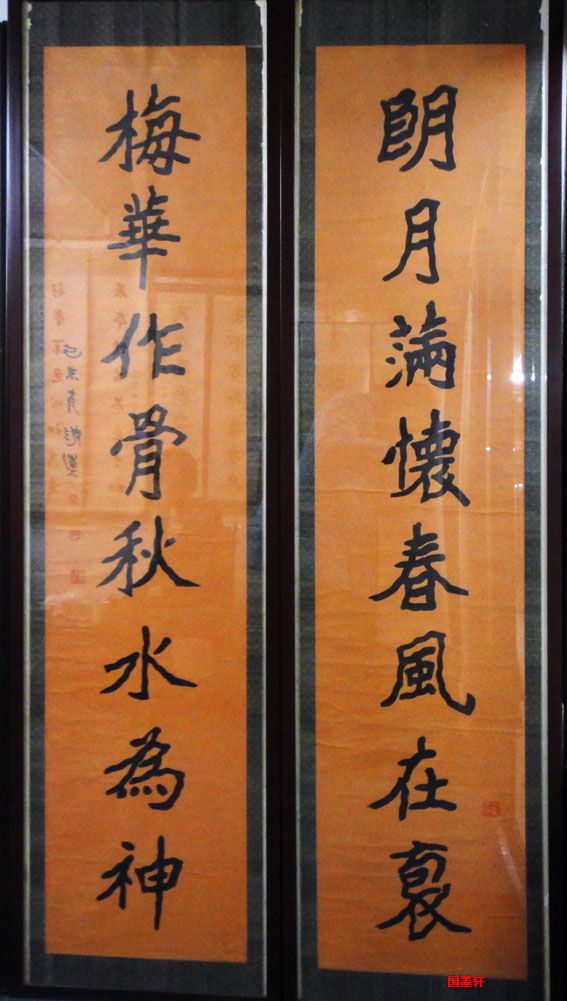 朗月滿懷春風在
梅華作骨秋水為神
己未
国墨轩